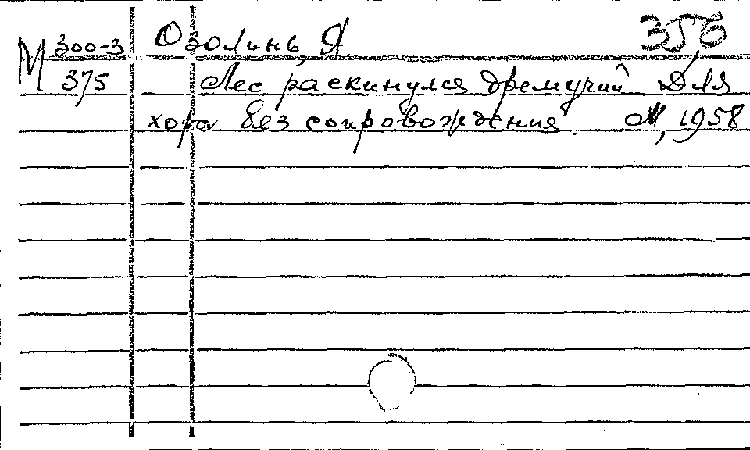 М 300-3 Озолинь, Я 356
375 Лес раскинулся дремучий Для
хора без сопровождения. М, 1958